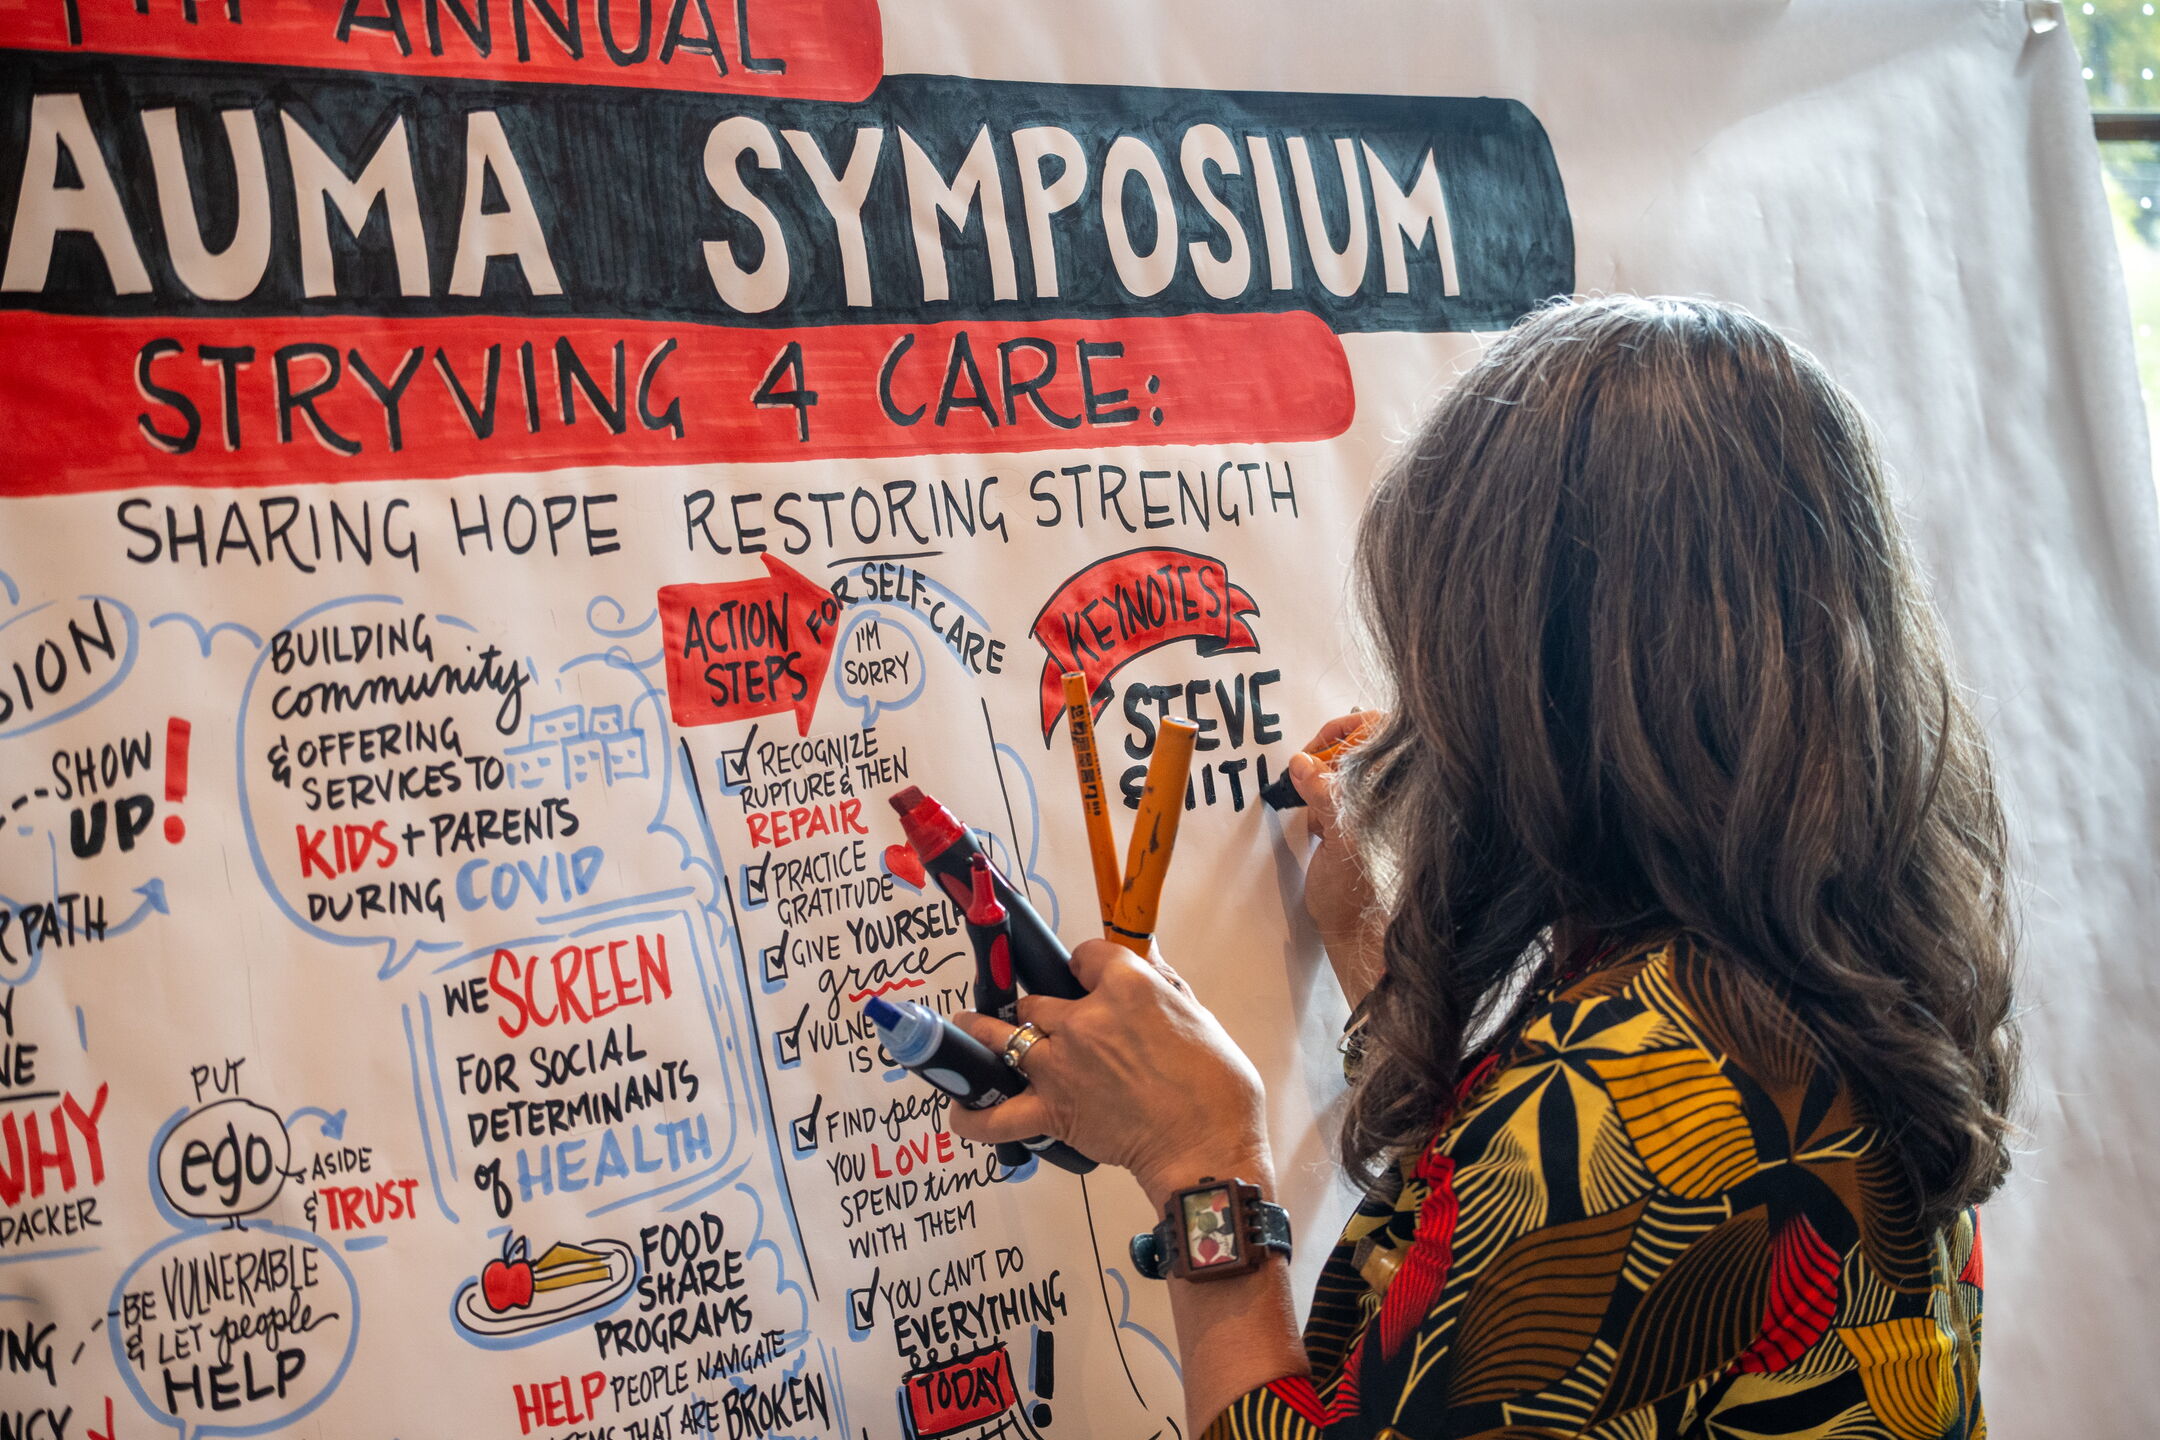 TH ANNUAL
AUMA SYMPOSIUM
STRYVING 4 CARE:
SHARING HOPE RESTORING STRENGTH
SION
SHOW
UP!
RPATH
NE
WHY
PACKER
PUT
ego
ASIDE
& TRUST
BE VULNERABLE
& LET people
HELP
ING
NCY
BUILDING
community
& OFFERING
SERVICES TO
KIDS + PARENTS
DURING COVID
WE SCREEN
FOR SOCIAL
DETERMINANTS
of HEALTH
FOOD
SHARE
PROGRAMS
HELP PEOPLE NAVIGATE
THAT ARE BROKEN
ACTION
STEPS
FOR SELF-CARE
I'M
SORRY
RECOGNIZE
RUPTURE & THEN
REPAIR
PRACTICE
GRATITUDE
GIVE YOURSELF
grace
VULNE ILITY
IS
FIND peop
YOU LOVE &
SPEND time
WITH THEM
YOU CAN'T DO
EVERYTHING
TODAY!
KEYNOTES
STEVE